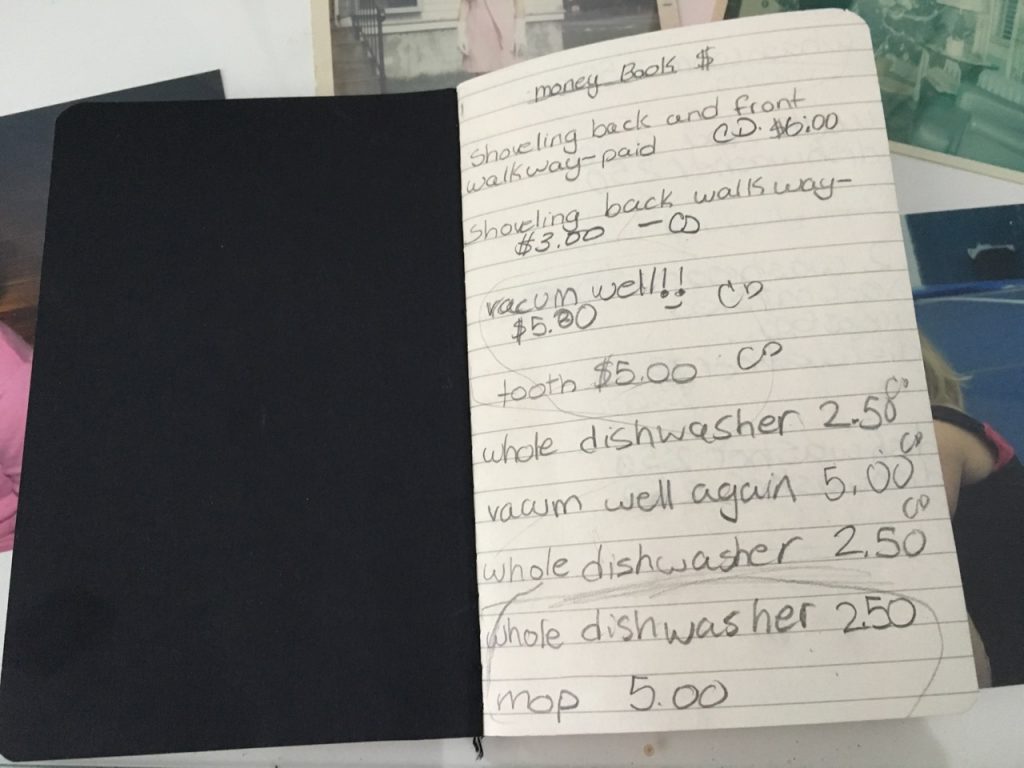 money Book $
Shoveling back and front
walkway-paid CD. $6.00
Shoveling back walkway-
$3.00 - CD
vacum well!! CD
$5.00
tooth $5.00 CD
whole dishwasher 2.50 CD
vacum well again 5.00 CD
whole dishwasher 2.50 CD
whole dishwasher 2.50
mop 5.00